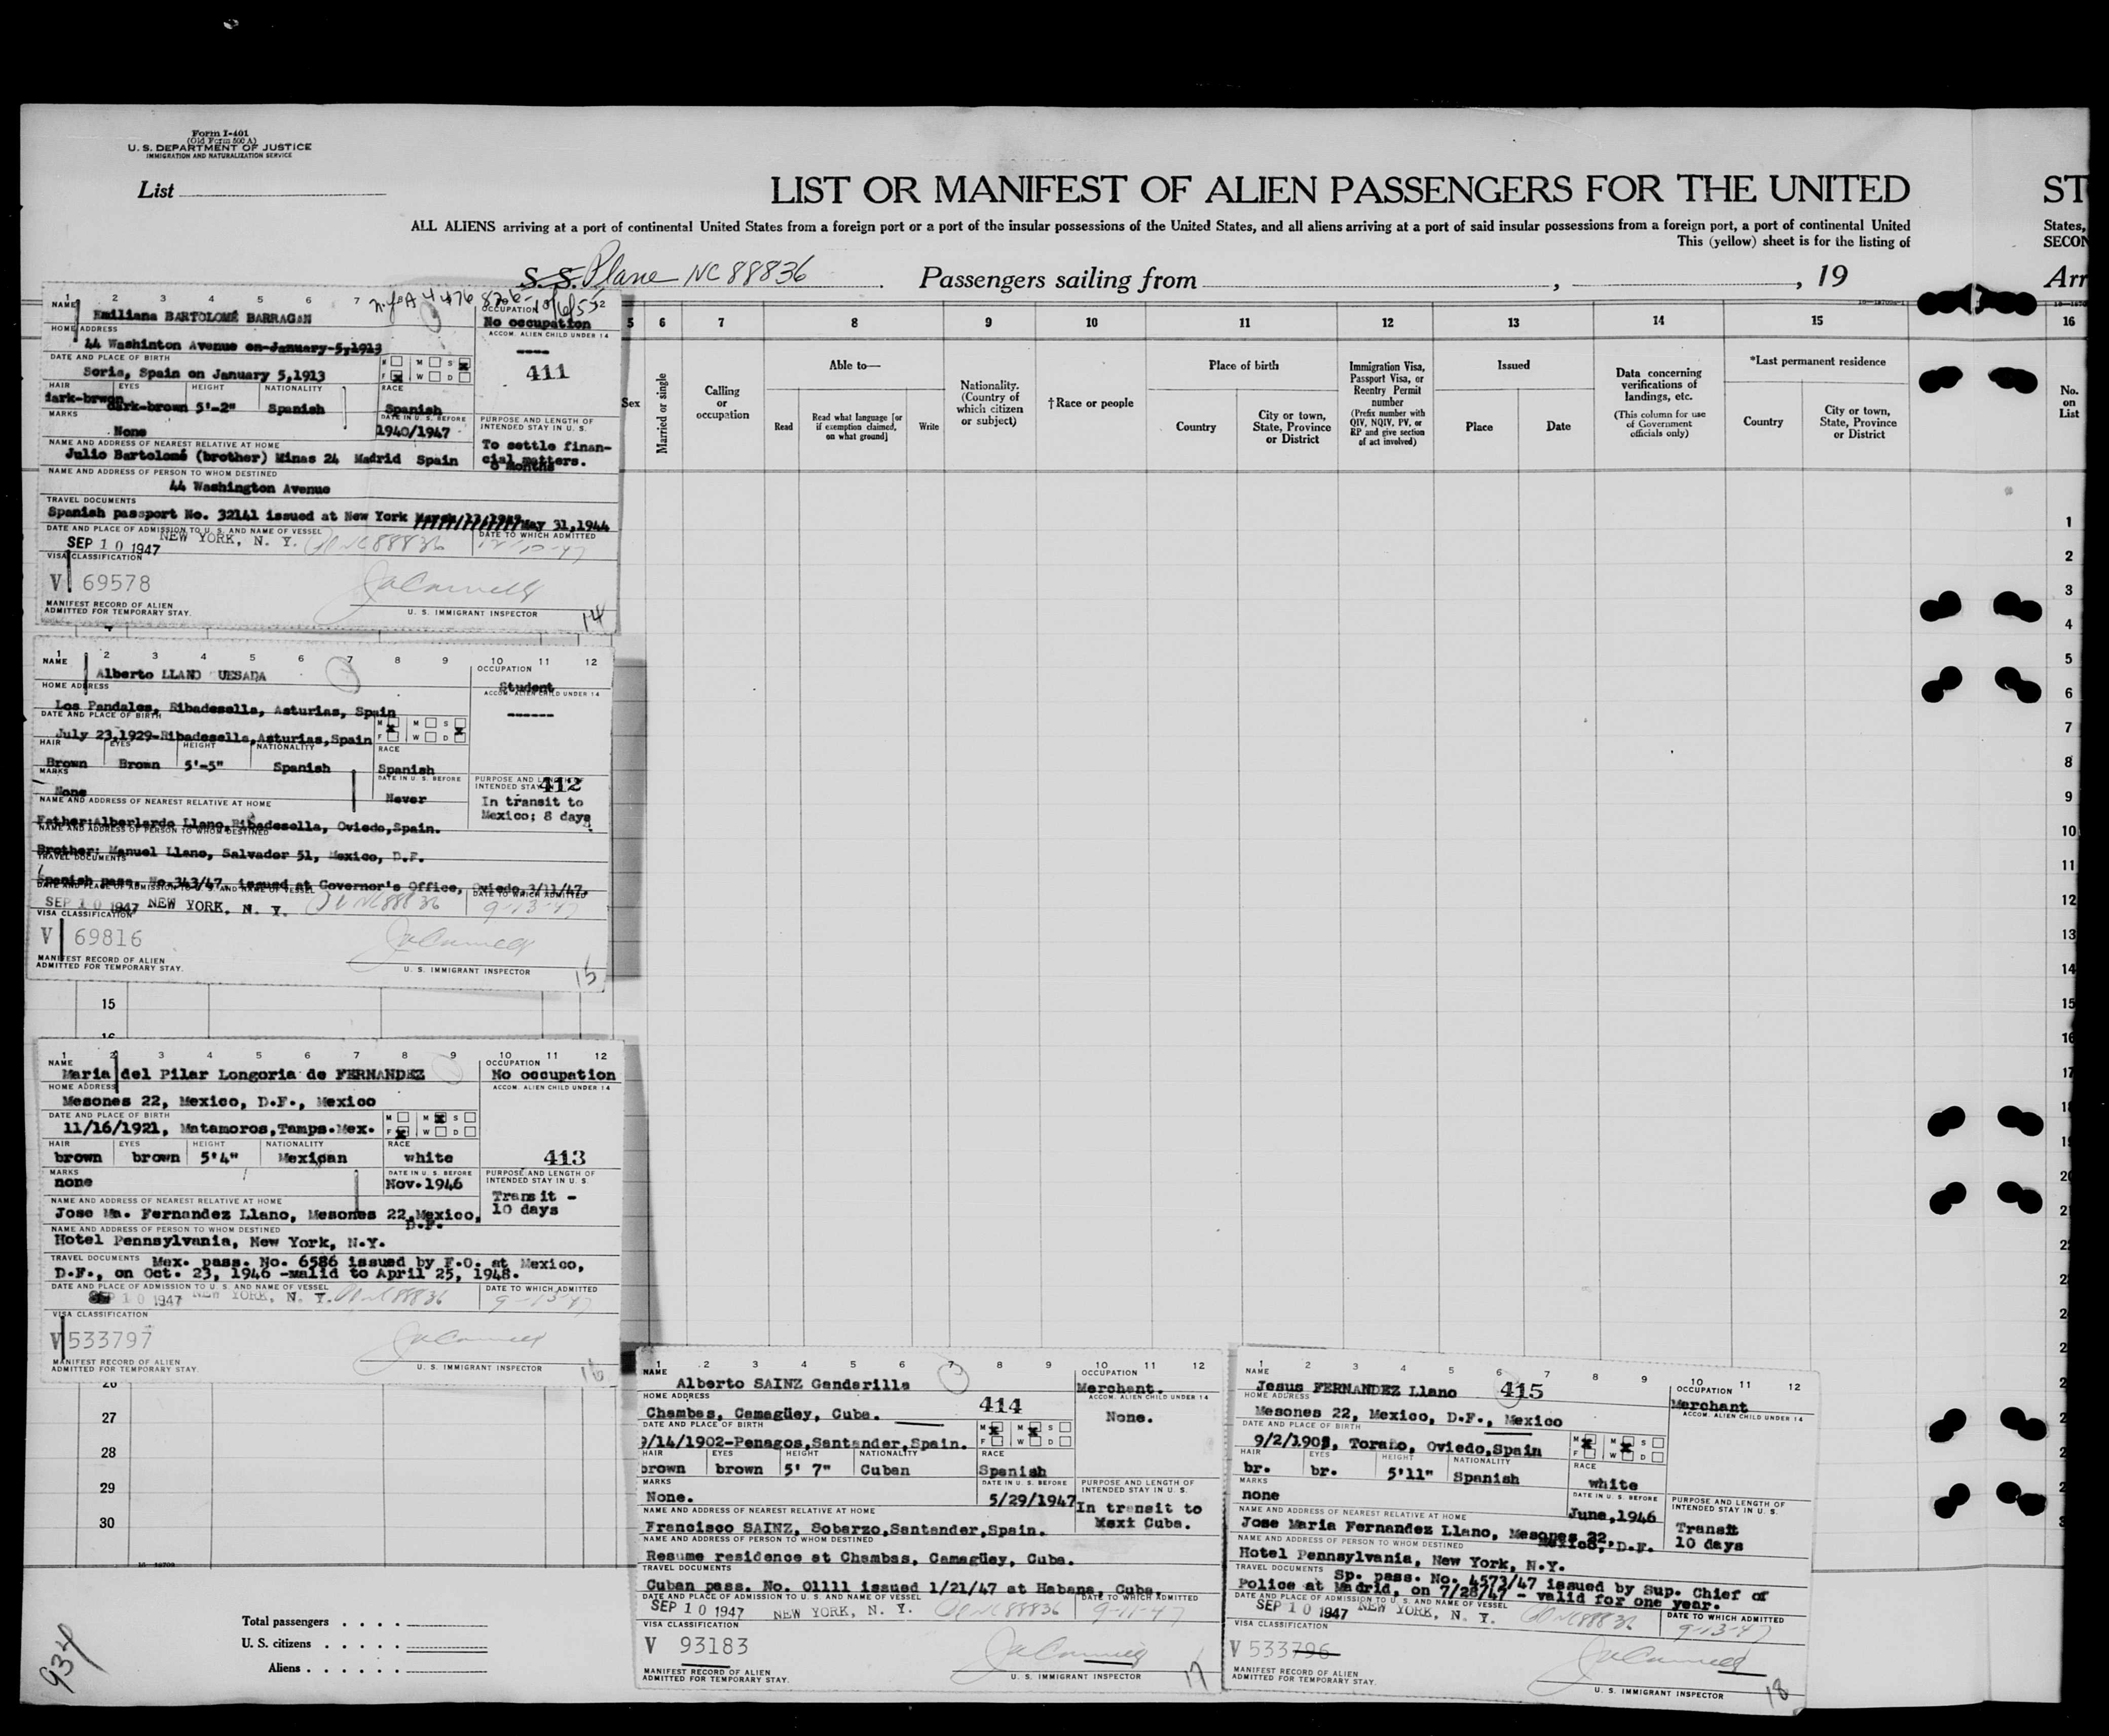 Form I-401
(Old Form 500 A)
U. S. DEPARTMENT OF JUSTICE
IMMIGRATION AND NATURALIZATION SERVICE
List
LIST OR MANIFEST OF ALIEN PASSENGERS FOR THE UNITED
ST
ALL ALIENS arriving at a port of continental United States from a foreign port or a port of the insular possessions of the United States, and all aliens arriving at a port of said insular possessions from a foreign port, a port of continental United
States,
This (yellow) sheet is for the listing of
SECON
S. S. Plane NC 88836 Passengers sailing from , , 19
Arr
5 6 7 8 9 10 11 12 13 14 15 16
Sex
Married or single
Calling or occupation
Able to—
Read
Read what language [or if exemption claimed, on what ground]
Write
Nationality. (Country of which citizen or subject)
†Race or people
Place of birth
Country
City or town, State, Province or District
Immigration Visa, Passport Visa, or Reentry Permit number
(Prefix number with QIV, NQIV, PV, or RP and give section of act involved)
Issued
Place
Date
Data concerning verifications of landings, etc.
(This column for use of Government officials only)
*Last permanent residence
Country
City or town, State, Province or District
No. on List
1
2
3
4
5
6
7
8
9
10
11
12
13
14
15
16
17
1 2 3 4 5 6 7
NAME
Emiliana BARTOLOMÉ BARRAGAN
OCCUPATION
No occupation
HOME ADDRESS
44 Washinton Avenue on-January-5,1913
ACCOM. ALIEN CHILD UNDER 14
----
DATE AND PLACE OF BIRTH
Soria, Spain on January 5,1913
M M S
F W D
411
HAIR EYES HEIGHT NATIONALITY RACE
dark-brwon dark-brown 5'-2" Spanish Spanish
MARKS
None
DATE IN U. S. BEFORE
1940/1947
PURPOSE AND LENGTH OF INTENDED STAY IN U. S.
To settle finan-
cial matters.
6 months
NAME AND ADDRESS OF NEAREST RELATIVE AT HOME
Julio Bartolomé (brother) Minas 24 Madrid Spain
NAME AND ADDRESS OF PERSON TO WHOM DESTINED
44 Washington Avenue
TRAVEL DOCUMENTS
Spanish passport No. 32141 issued at New York May 31,1944
DATE AND PLACE OF ADMISSION TO U. S. AND NAME OF VESSEL
SEP 10 1947 NEW YORK, N. Y. NC 88836
DATE TO WHICH ADMITTED
12-10-47
VISA CLASSIFICATION
V 69578
MANIFEST RECORD OF ALIEN
ADMITTED FOR TEMPORARY STAY.
U. S. IMMIGRANT INSPECTOR
14
1 2 3 4 5 6 7 8 9 10 11 12
NAME
Alberto LLANO UESADA
OCCUPATION
Student
HOME ADDRESS
Los Pandales, Ribadesella, Asturias, Spain
ACCOM. ALIEN CHILD UNDER 14
------
DATE AND PLACE OF BIRTH
July 23,1929-Ribadesella,Asturias,Spain
M M S
F W D
HAIR EYES HEIGHT NATIONALITY RACE
Brown Brown 5'-5" Spanish Spanish
MARKS
None
DATE IN U. S. BEFORE
Never
PURPOSE AND LENGTH OF INTENDED STAY
412
In transit to
Mexico; 8 days
NAME AND ADDRESS OF NEAREST RELATIVE AT HOME
Father:Alberlardo Llano,Ribadesella, Oviedo,Spain.
NAME AND ADDRESS OF PERSON TO WHOM DESTINED
Brother: Manuel Llano, Salvador 51, Mexico, D.F.
TRAVEL DOCUMENTS
Spanish pass. No.343/47, issued at Governor's Office, Oviedo,3/11/47.
DATE AND PLACE OF ADMISSION TO U. S. AND NAME OF VESSEL
DATE TO WHICH ADMITTED
SEP 10 1947 NEW YORK, N. Y. NC 88836 9-13-47
VISA CLASSIFICATION
V 69816
MANIFEST RECORD OF ALIEN
ADMITTED FOR TEMPORARY STAY.
U. S. IMMIGRANT INSPECTOR
15
15
1 2 3 4 5 6 7 8 9 10 11 12
NAME
Maria del Pilar Longoria de FERNANDEZ
OCCUPATION
No occupation
HOME ADDRESS
Mesones 22, Mexico, D.F., Mexico
ACCOM. ALIEN CHILD UNDER 14
DATE AND PLACE OF BIRTH
11/16/1921, Matamoros,Tamps.Mex.
M M S
F W D
HAIR EYES HEIGHT NATIONALITY RACE
brown brown 5'4" Mexican white
413
MARKS
none
DATE IN U. S. BEFORE
Nov.1946
PURPOSE AND LENGTH OF INTENDED STAY IN U. S.
Transit -
10 days
NAME AND ADDRESS OF NEAREST RELATIVE AT HOME
Jose Ma. Fernandez Llano, Mesones 22,Mexico,
D.F.
NAME AND ADDRESS OF PERSON TO WHOM DESTINED
Hotel Pennsylvania, New York, N.Y.
TRAVEL DOCUMENTS
Mex. pass. No. 6586 issued by F.O. at Mexico,
D.F., on Oct. 23, 1946 -valid to April 25, 1948.
DATE AND PLACE OF ADMISSION TO U. S. AND NAME OF VESSEL
SEP 10 1947 NEW YORK, N. Y. NC 88836
DATE TO WHICH ADMITTED
9-13-47
VISA CLASSIFICATION
V 533797
MANIFEST RECORD OF ALIEN
ADMITTED FOR TEMPORARY STAY.
U. S. IMMIGRANT INSPECTOR
16
27
28
29
30
1 2 3 4 5 6 7 8 9 10 11 12
NAME
Alberto SAINZ Gandarilla
OCCUPATION
Merchant.
HOME ADDRESS
Chambas, Camagüey, Cuba.
414
ACCOM. ALIEN CHILD UNDER 14
None.
DATE AND PLACE OF BIRTH
9/14/1902-Penagos,Santander,Spain.
M M S
F W D
HAIR EYES HEIGHT NATIONALITY RACE
brown brown 5' 7" Cuban Spanish
MARKS
None.
DATE IN U. S. BEFORE
5/29/1947
PURPOSE AND LENGTH OF INTENDED STAY IN U. S.
In transit to
Cuba.
NAME AND ADDRESS OF NEAREST RELATIVE AT HOME
Francisco SAINZ, Sobarzo,Santander,Spain.
NAME AND ADDRESS OF PERSON TO WHOM DESTINED
Resume residence at Chambas, Camagüey, Cuba.
TRAVEL DOCUMENTS
Cuban pass. No. 01111 issued 1/21/47 at Habana, Cuba.
DATE AND PLACE OF ADMISSION TO U. S. AND NAME OF VESSEL
DATE TO WHICH ADMITTED
SEP 10 1947 NEW YORK, N. Y. NC 88836 9-11-47
VISA CLASSIFICATION
V 93183
MANIFEST RECORD OF ALIEN
ADMITTED FOR TEMPORARY STAY.
U. S. IMMIGRANT INSPECTOR
17
1 2 3 4 5 6 7 8 9 10 11 12
NAME
Jesus FERNANDEZ Llano
415
OCCUPATION
Merchant
HOME ADDRESS
Mesones 22, Mexico, D.F., Mexico
ACCOM. ALIEN CHILD UNDER 14
DATE AND PLACE OF BIRTH
9/2/1905, Toraño, Oviedo,Spain
M M S
F W D
HAIR EYES HEIGHT NATIONALITY RACE
br. br. 5'11" Spanish white
MARKS
none
DATE IN U. S. BEFORE
June,1946
PURPOSE AND LENGTH OF INTENDED STAY IN U. S.
Transit
10 days
NAME AND ADDRESS OF NEAREST RELATIVE AT HOME
Jose Maria Fernandez Llano, Mesones 22,
Mexico, D.F.
NAME AND ADDRESS OF PERSON TO WHOM DESTINED
Hotel Pennsylvania, New York, N.Y.
TRAVEL DOCUMENTS
Sp. pass. No. 4573/47 issued by Sup. Chief of
Police at Madrid, on 7/28/47 - valid for one year.
DATE AND PLACE OF ADMISSION TO U. S. AND NAME OF VESSEL
SEP 10 1947 NEW YORK, N. Y. NC 88836
DATE TO WHICH ADMITTED
9-13-47
VISA CLASSIFICATION
V 533796
MANIFEST RECORD OF ALIEN
ADMITTED FOR TEMPORARY STAY.
U. S. IMMIGRANT INSPECTOR
18
Total passengers
U. S. citizens
Aliens
934